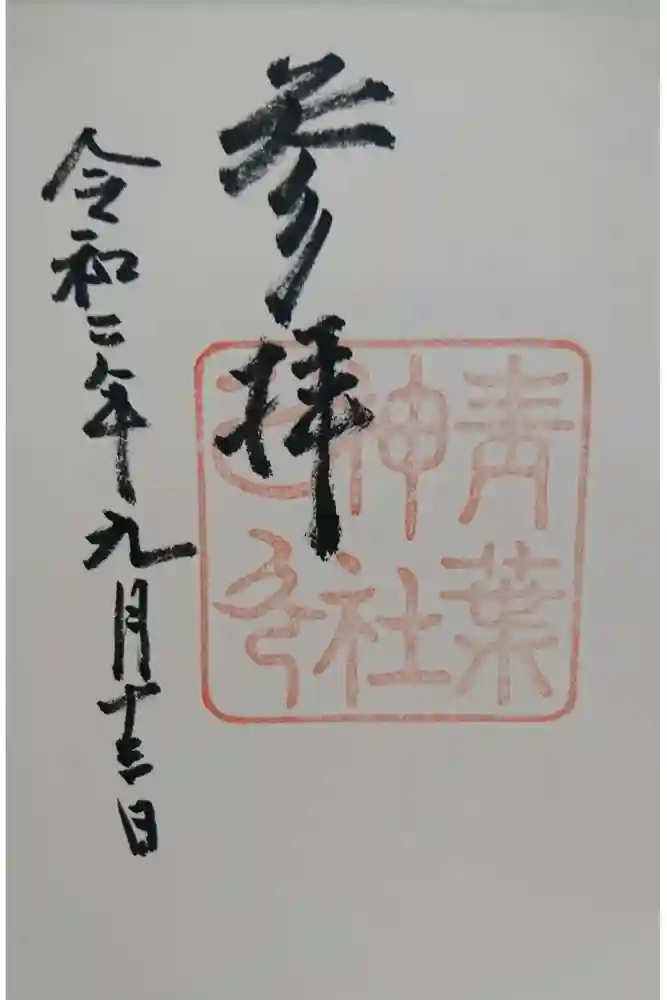 参拝
青葉
神社
令和二年九月十三日